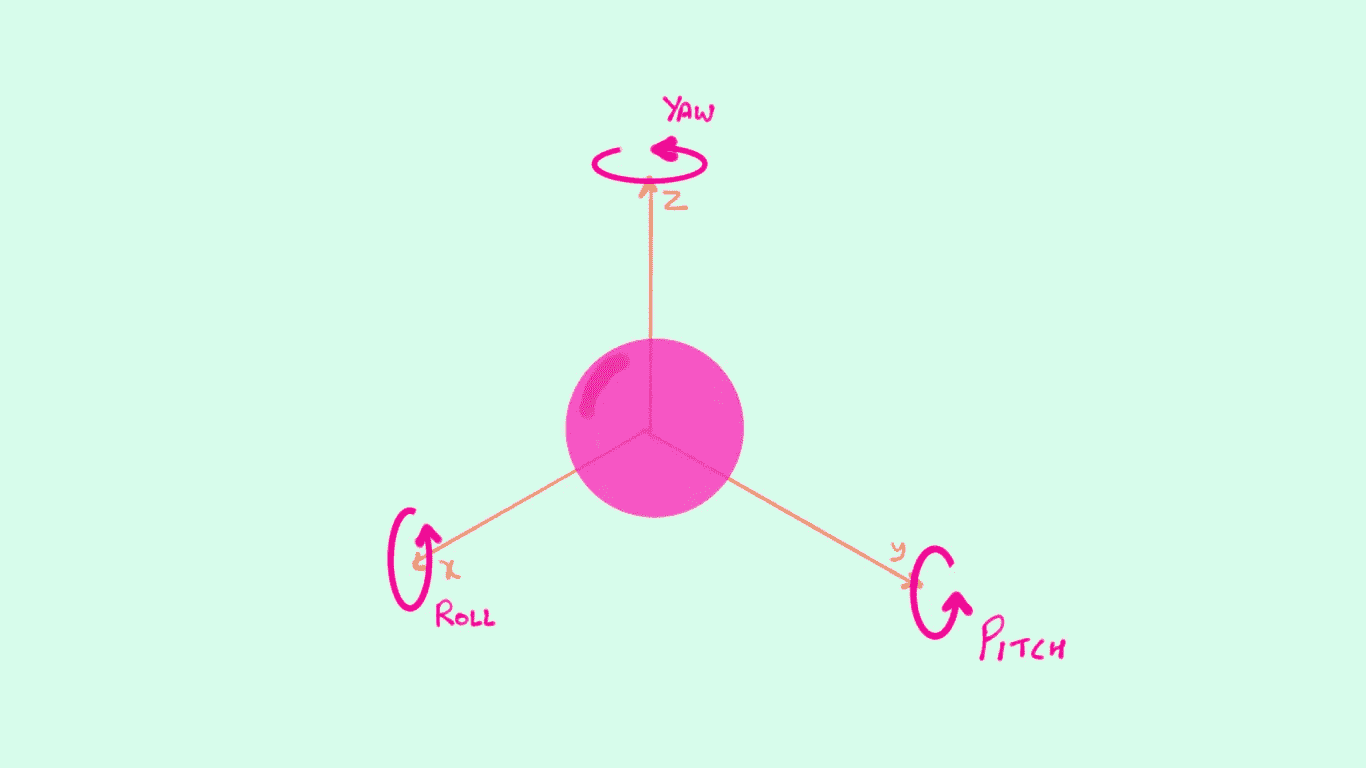 YAW
Z
y
x
ROLL
PITCH